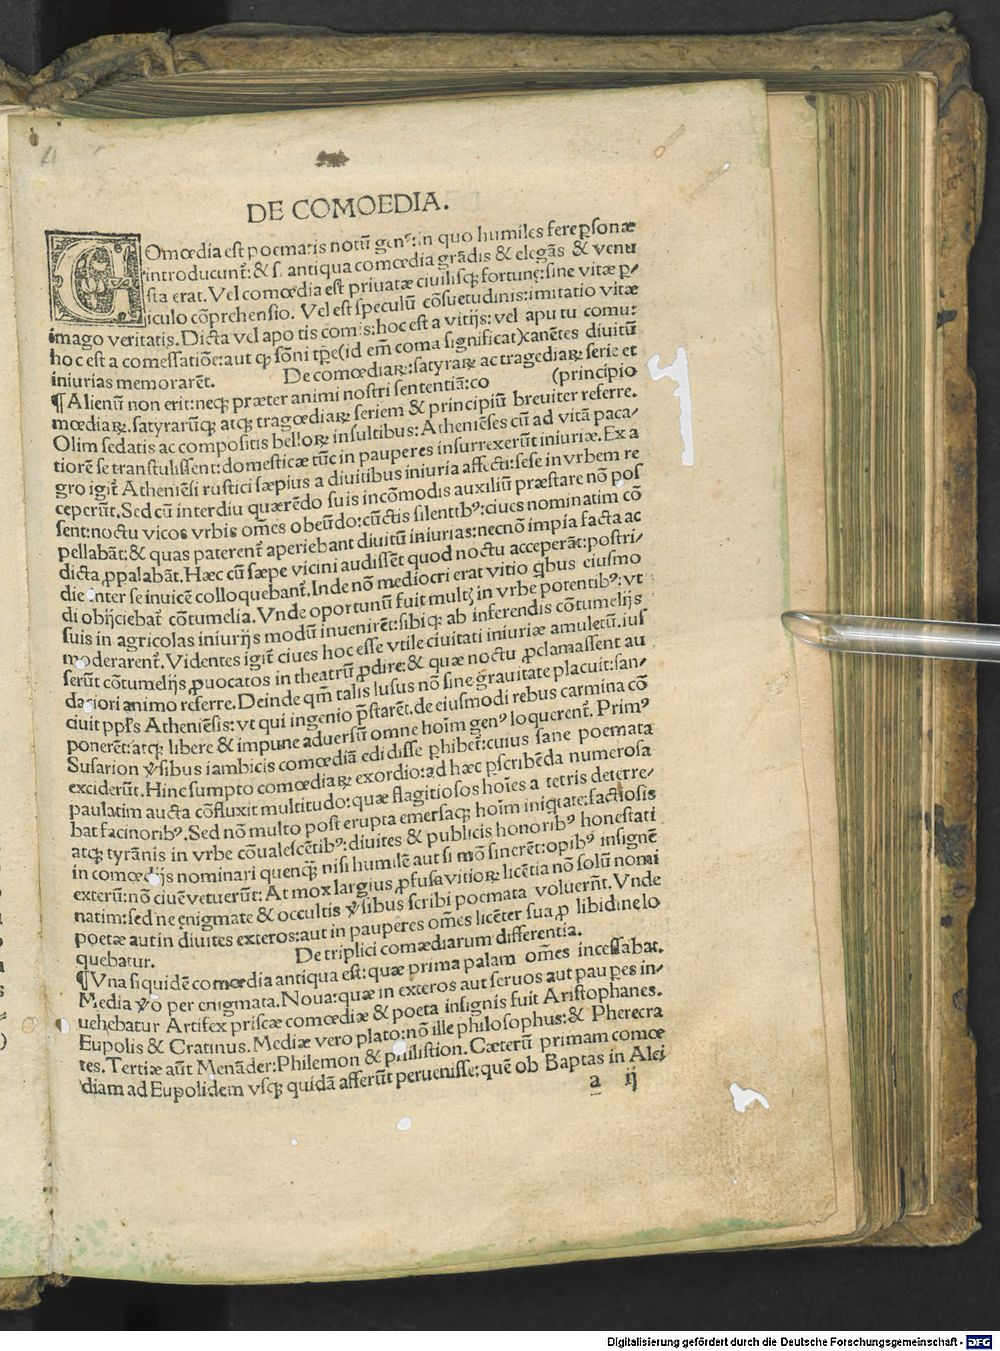 DE COMOEDIA.
COmœdia est poematis notũ genꝰ: in quo humiles fere ꝑsonæ
introducunt̃: & s. antiqua comœdia grãdis & elegãs & venu
sta erat. Vel comœdia est priuatæ ciuilisq; fortunę: sine vitæ ꝑ⸗
iculo cõprehensio. Vel est speculũ cõsuetudinis: imitatio vitæ
imago veritatis. Dicta vel apo tis comis: hoc est a vitijs: vel apu tu comu:
hoc est a comessatiõe: aut ꝙ sõni tp̃e (id em̃ coma significat) canẽtes diuitũ
iniurias memorarẽt. De comœdiaꝝ: satyraꝝ ac tragediaꝝ serie et
¶ Alienũ non erit: neq; præter animi nostri sententiã: co (principio
mœdiaꝝ. satyrarũq; atq; tragœdiaꝝ seriem & principiũ breuiter referre.
Olim sedatis ac compositis belloꝝ insultibus: Atheniẽses cũ ad vitã paca⸗
tiorẽ se transtulissent: domesticæ tũc in pauperes insurrexerũt iniuriæ. Ex a
gro igit̃ Atheniẽsi rustici sæpius a diuitibus iniuria affecti: sese in vrbem re
ceperũt. Sed cũ interdiu quærẽdo suis incõmodis auxiliũ præstare nõ pos
sent: noctu vicos vrbis om̃es obeũdo: cũctis silentibꝰ: ciues nominatim cõ
pellabãt: & quas paterent̃ aperiebant diuitũ iniurias: necnõ impia facta ac
dicta ꝓpalabãt. Hæc cũ sæpe vicini audissẽt quod noctu acceperãt: postri⸗
die inter se inuicẽ colloquebant̃. Inde nõ mediocri erat vitio ꝗbus eiusmo
di obijciebat̃ cõtumelia. Vnde oportunũ fuit multꝭ in vrbe potentibꝰ: vt
suis in agricolas iniurijs modũ inuenirẽt: sibiq; ab inferendis cõtumelijs
moderarent̃. Videntes igit̃ ciues hoc esse vtile ciuitati iniuriæ amuletũ. ius
serũt cõtumelijs ꝓuocatos in theatrũ ꝓdire: & quæ noctu ꝓclamassent au
daciori animo referre. Deinde qm̃ talis lusus nõ sine grauitate placuit: san⸗
ciuit ppl's Atheniẽsis: vt qui ingenio p̃starẽt. de eiusmodi rebus carmina cõ
ponerẽt: atq; libere & impune aduersũ omne hoim̃ genꝰ loquerent̃. Primꝰ
Susarion v̉sibus iambicis comœdiã edidisse ꝑhibet̃: cuius sane poemata
exciderũt. Hinc sumpto comœdiaꝝ exordio: ad hæc ꝑscribẽda numerosa
paulatim aucta cõfluxit multitudo: quæ flagitiosos hoĩes a tetris deterre⸗
bat facinoribꝰ. Sed nõ multo post erupta emersaq; hoim̃ iniqtate: factiosis
atq; tyrãnis in vrbe cõualescẽtibꝰ: diuites & publicis honoribꝰ honestati
in comœdijs nominari quenq̃; nisi humilẽ aut si mõ sincrẽt: opibꝰ insignẽ
exterũ: nõ ciuẽ vetuerũt: At mox largius ꝓfusa vitioꝝ licẽtia nõ solũ nomi
natim: sed ne ęnigmate & occultis v̉sibus scribi poemata voluerñt. Vnde
poetæ aut in diuites exteros: aut in pauperes om̃es licẽter sua ꝓ libidine lo
quebatur. De triplici comædiarum differentia.
¶ Vna siquidẽ comœdia antiqua est: quæ prima palam om̃es incessabat.
Media v̉o per enigmata. Noua: quæ in exteros aut seruos aut pauꝑes in⸗
uehebatur Artifex priscæ comœdiæ & poeta insignis fuit Aristophanes.
Eupolis & Cratinus. Mediæ vero plato: nõ ille philosophus: & Pherecra
tes. Tertiæ aũt Menãder: Philemon & philistion. Cæterũ primam comœ
diam ad Eupolidem vsq; quidã afferũt peruenisse: quẽ ob Baptas in Alci
a ij
Digitalisierung gefördert durch die Deutsche Forschungsgemeinschaft - DFG